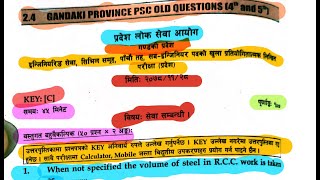 2.4 GANDAKI PROVINCE PSC OLD QUESTIONS (4th and 5th)
प्रदेश लोक सेवा आयोग
गण्डकी प्रदेश
इन्जिनियरिङ्ग सेवा, सिभिल समूह, पाँचौं तह, सब-इन्जिनियर पदको खुला प्रतियोगितात्मक लिखित
परीक्षा (प्रदेश)
मितिः २०७८/११/१८
KEY: [C]
समयः ४५ मिनेट
पूर्णाङ्कः
विषयः सेवा सम्बन्धी
वस्तुगत बहुवैकल्पिक (५० प्रश्न × २ अङ्क)
उत्तरपुस्तिकामा प्रश्नपत्रको KEY अनिवार्य रुपले उल्लेख गर्नुपर्नेछ । KEY उल्लेख नगरेमा उत्तरपुस्तिका
हुनेछ । साथै परीक्षामा Calculator, Mobile जस्ता विद्युतीय उपकरणहरु प्रयोग गर्न पाइने छैन ।
1. When not specified the volume of steel in R.C.C. work is taken